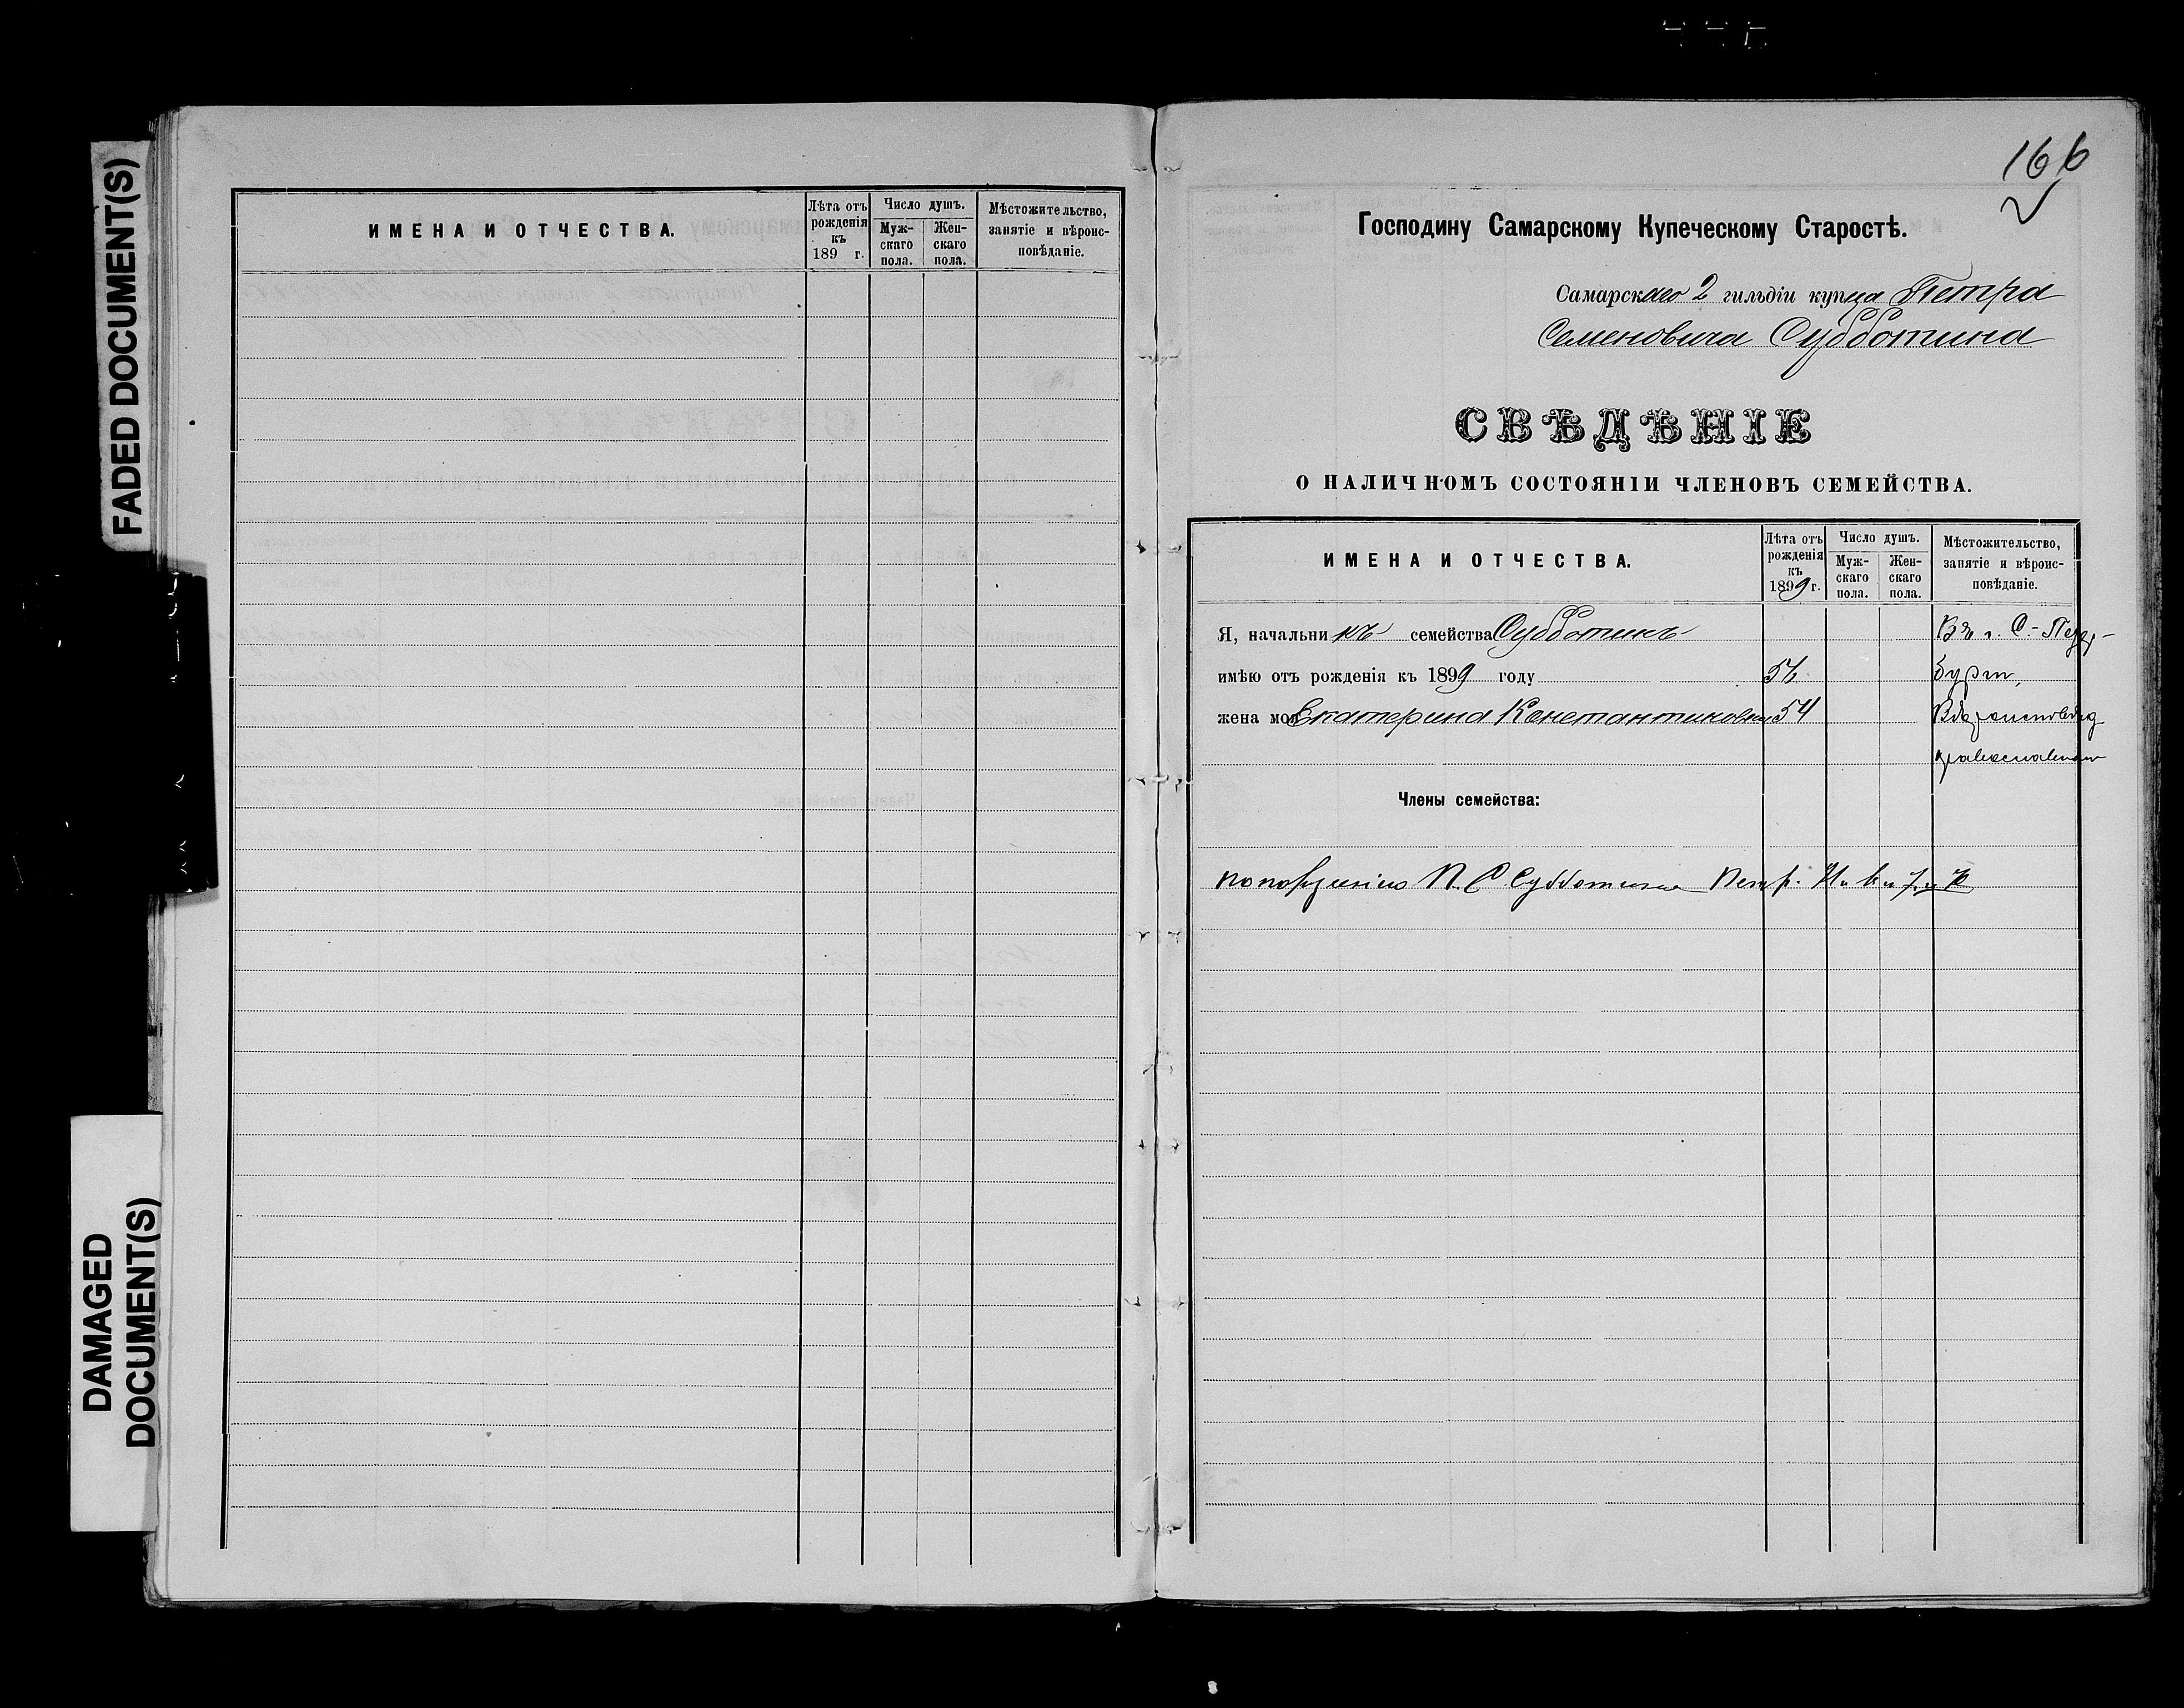 FADED DOCUMENT(S)
DAMAGED
DOCUMENT(S)
ИМЕНА И ОТЧЕСТВА.
Лѣта отъ
рожденія
къ
189 г.
Число душъ.
Муж-
скаго
пола.
Жен-
скаго
пола.
Мѣстожительство,
занятіе и вѣроис-
повѣданіе.
166
Господину Самарскому Купеческому Старостѣ.
Самарскаго 2 гильдіи купца Петра
Семеновича Субботина
СВѢДѢНІЕ
О НАЛИЧНОМЪ СОСТОЯНІИ ЧЛЕНОВЪ СЕМЕЙСТВА.
ИМЕНА И ОТЧЕСТВА.
Лѣта отъ
рожденія
къ
1899 г.
Число душъ.
Муж-
скаго
пола.
Жен-
скаго
пола.
Мѣстожительство,
занятіе и вѣроис-
повѣданіе.
Я, начальникъ семейства Субботинъ Въ г. С.-Петер-
имѣю отъ рожденія къ 1899 году 56 бургѣ,
жена моя Екатерина Константиновна 54
Члены семейства:
П. С Субботина